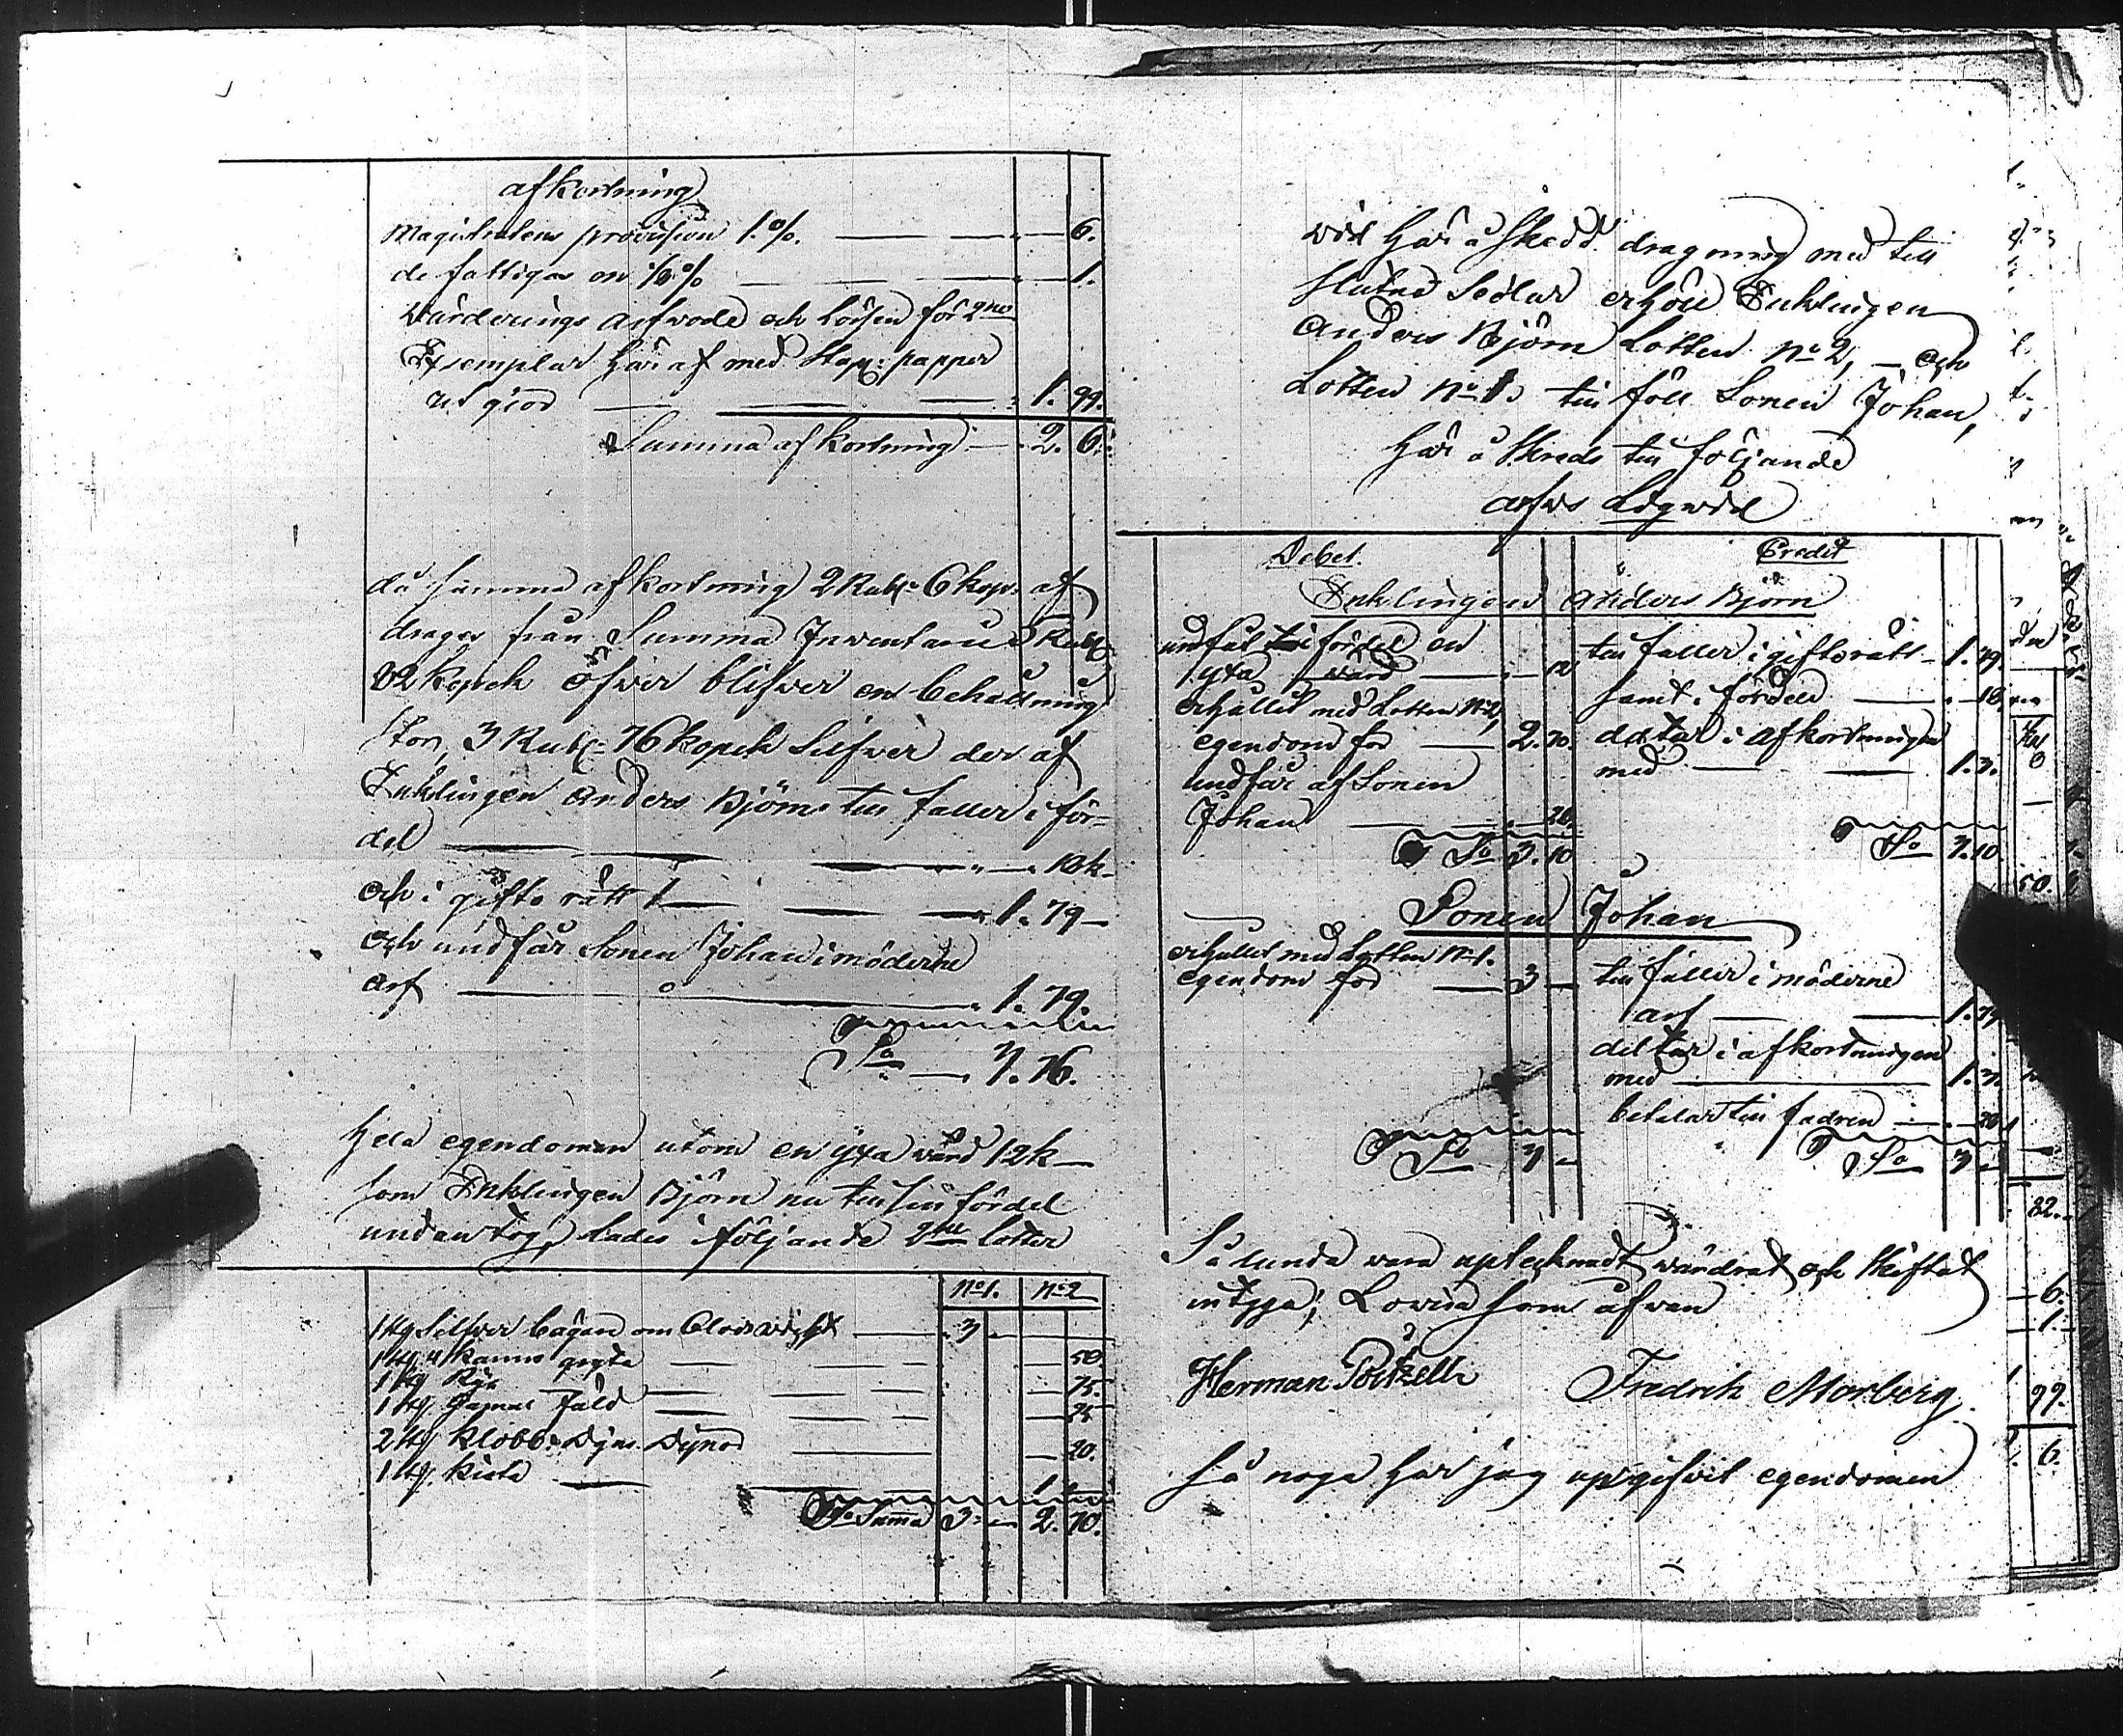 afkortning
Magistratens provision 1.% — — 6.
de fattigas en 1/8% — — 1.
Värderings arfvode och Lösen för 2ne
Exemplar häraf med Stap: papper
ut giör — — 1. 99.
Summa afkortning — 2. 6.
då summa afkortning 2 Rub: 6 kop: af
drages från Summa Inventarii 5 Rub:
82 kopek öfver blifver en behållning
stor, 3 Rub: 76 kopek Silfver der af
Enklingen Anders Björn till faller i för=
del — — 18 k
och i gifto rätt — — 1. 79 —
och undfår Sonen Johan i möderne
arf — — 1. 79.
Sa — 3. 76.
Hela egendomen utom en yxa värd 12 k —
som Enklingen Björn nu till sin fördel
undantog, lades i följande 2ne lotter
No 1. No 2
1 st Silfver bägare om lods vigt — 3 —
1 st 4 kanns gryta — 50
1 st Rya — 75.
1 st gamal fäld — 25
2 st Dynor — 20.
1 st kista — 1
Summa 3 — 2. 70.
vid här å skedd dragning med till
slutne Sedlar erhöll Enklingen
Anders Björn Lotten No 2, — och
Lotten No 1. till föll Sonen Johan,
här å skreds till följande
arfs Liqvid
Debet. Credit
Enklingen Anders Björn
undfåt i fördel en
yxa värd — 12
erhållit med Lotten No 2,
egendom för — 2. 70.
undfår af Sonen
Johan — 28.
Sa 3. 10
till faller i giftorätt — 1. 79.
samt i fördel — 18.
deltar i afkortningen
med — 1. 3.
Sa 3. 10
Sonen Johan
erhållit med Lotten No 1.
egendom för — 3 —
Sa 3 —
till faller i möderne
arf — 1. 79
deltar i afkortningen
med — 1. 3.
betalar till fadren — 28
Sa 3 —
Således vara uptecknadt, värderat och skiftat
intyga; Lovisa som åfvan
Herman Fredrik Morberg
så noga har jag uppgifvit egendomen
50.
82.
6.
1.
1 99.
2. 6.